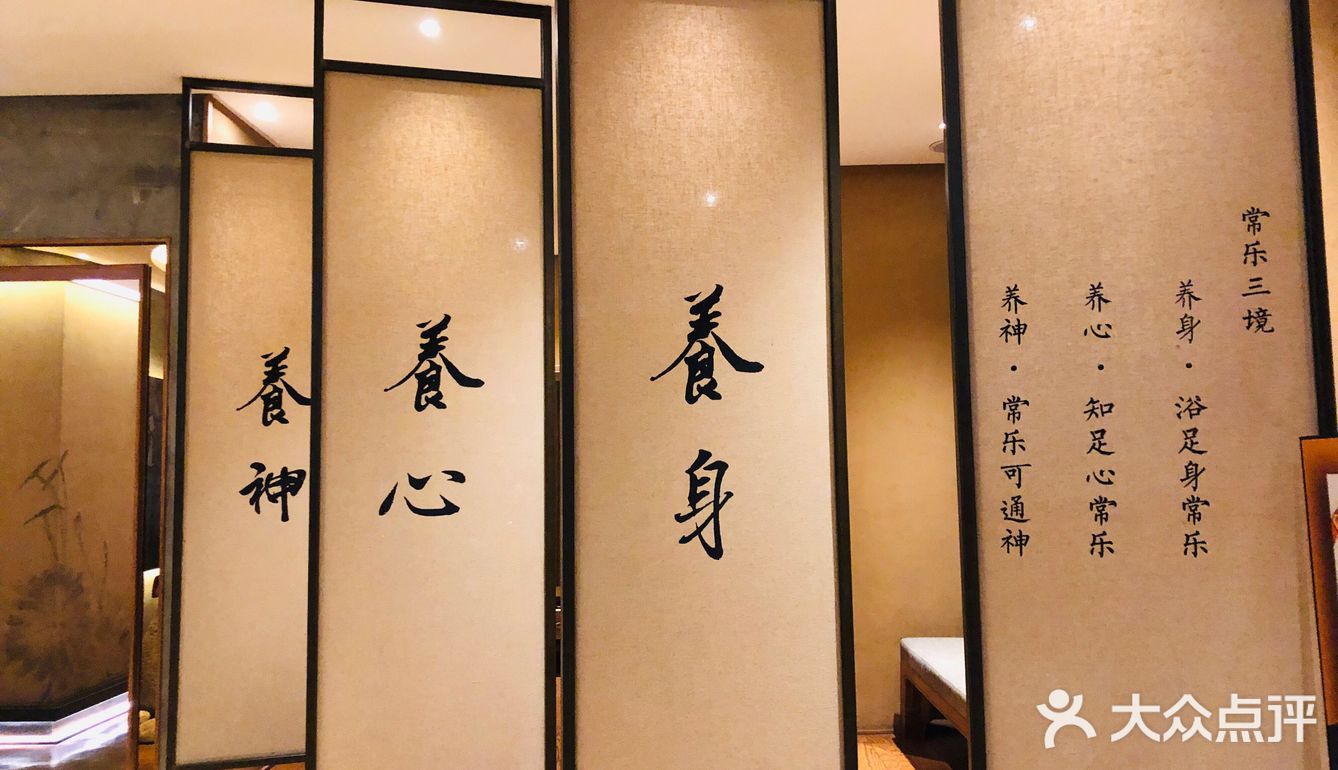 常乐三境
养身·浴足身常乐
养心·知足心常乐
养神·常乐可通神
養身
養心
養神
大众点评